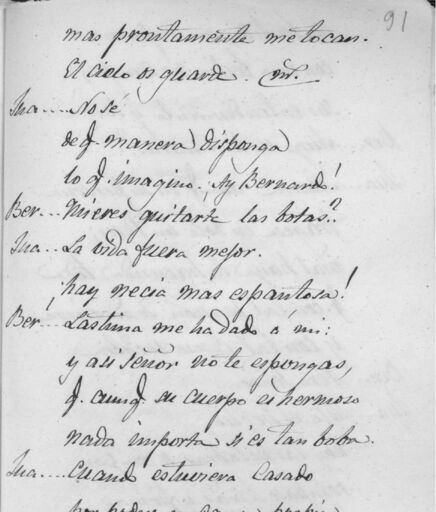 91
mas prontamente me tocan.
El cielo os guarde. 
Jua.... No sé
de q. manera disponga
lo q. imagino, Ay Bernardo!
Ber... Quieres quitarte las botas?
Jua... La vida fuera mejor.
hay necia mas espantosa!
Ber... Lastima me ha dado á mi:
y asi señor no te espongas,
q. aunq. su cuerpo es hermoso
nada importa si es tan boba.
Jua.... Cuando estuviera casado